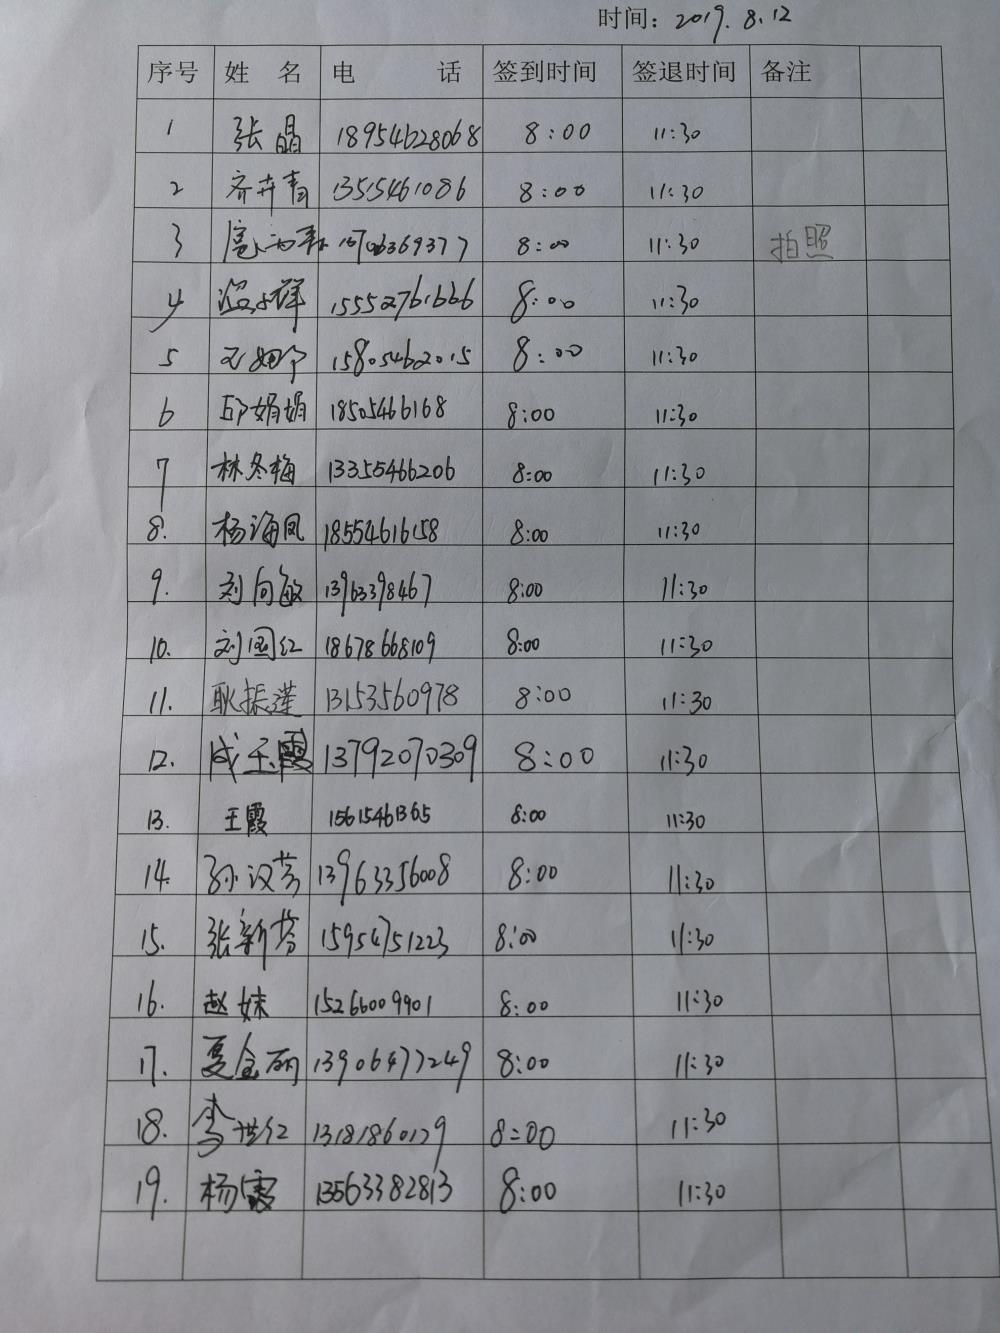 时间：2019.8.12
序号 姓 名 电 话 签到时间 签退时间 备注
1 张晶 18954628068 8:00 11:30
2 齐卉青 13515461086 8:00 11:30
3 8:00 11:30 拍照
4 15552761666 8:00 11:30
5 15805462015 8:00 11:30
6 邱娟娟 18505466168 8:00 11:30
7 林冬梅 13355466206 8:00 11:30
8. 杨海凤 18554616158 8:00 11:30
9. 刘向敏 13963398467 8:00 11:30
10. 刘国红 18678668109 8:00 11:30
11. 耿振莲 13153560978 8:00 11:30
12. 成玉霞 13792070309 8:00 11:30
13. 王霞 15615461365 8:00 11:30
14. 孙汉芳 13963356008 8:00 11:30
15. 张新芬 15954751223 8:00 11:30
16. 赵妹 15266009901 8:00 11:30
17. 夏金丽 13906477249 8:00 11:30
18. 李世红 13181860179 8:00 11:30
19. 杨霞 13563382813 8:00 11:30